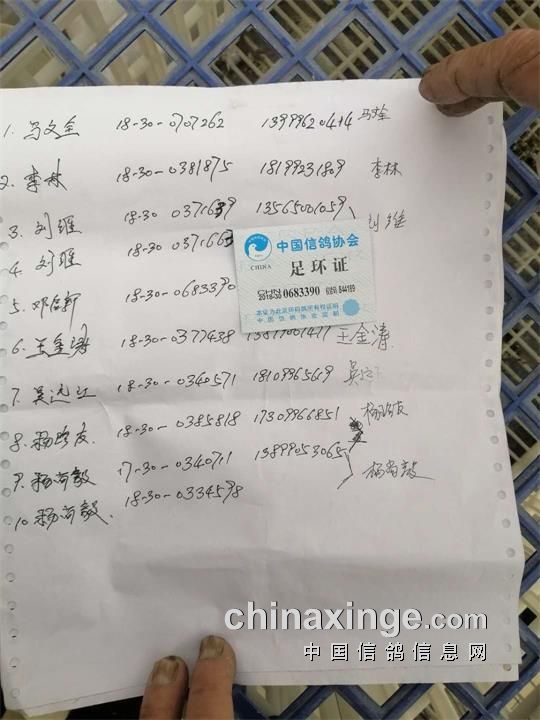 1. 马文全 18-30-0707262 13999620414 马文全
2. 李林 18-30-0381875 18199231809 李林
3. 刘维 18-30 0371639 13565001059 刘维
4. 刘维 18-30 037166
5. 邓 新 18-30-0683390
6. 王金涛 18-30-0377438 王金涛
7. 吴远江 18-30-0340571 18109965619 吴
8. 杨 友 18-30-0385818 17309966851 杨 友
9. 杨尚毅 17-30-0340711 13899053065 杨尚毅
10. 杨尚毅 18-30-0334598
中国信鸽协会
CHINA
足环证
2018-30 0683390
中国信鸽协会监制
chinaxinge.com
中国信鸽信息网